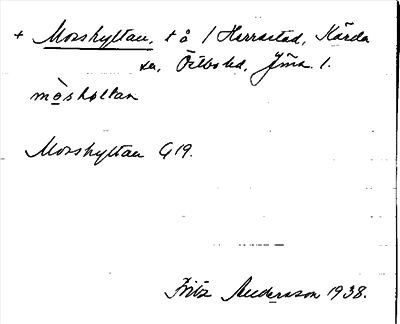 + Mosshyltan, t å / Harrastad, Kärda
sn, Östbo hd, Jöns. l.
mòsholtan
Mosshyltan G 19.
Fritz Andersson 1938.